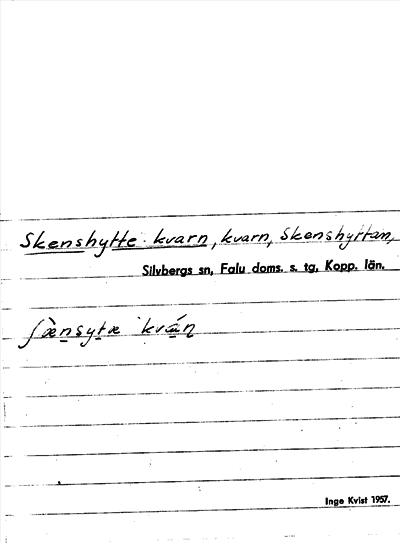 Skenshytte kvarn, kvarn, Skenshyttan,
Silvbergs sn, Falu doms. s. tg, Kopp. län.
ʃæ̀nsytæ kvάɳ
Inge Kvist 1957.